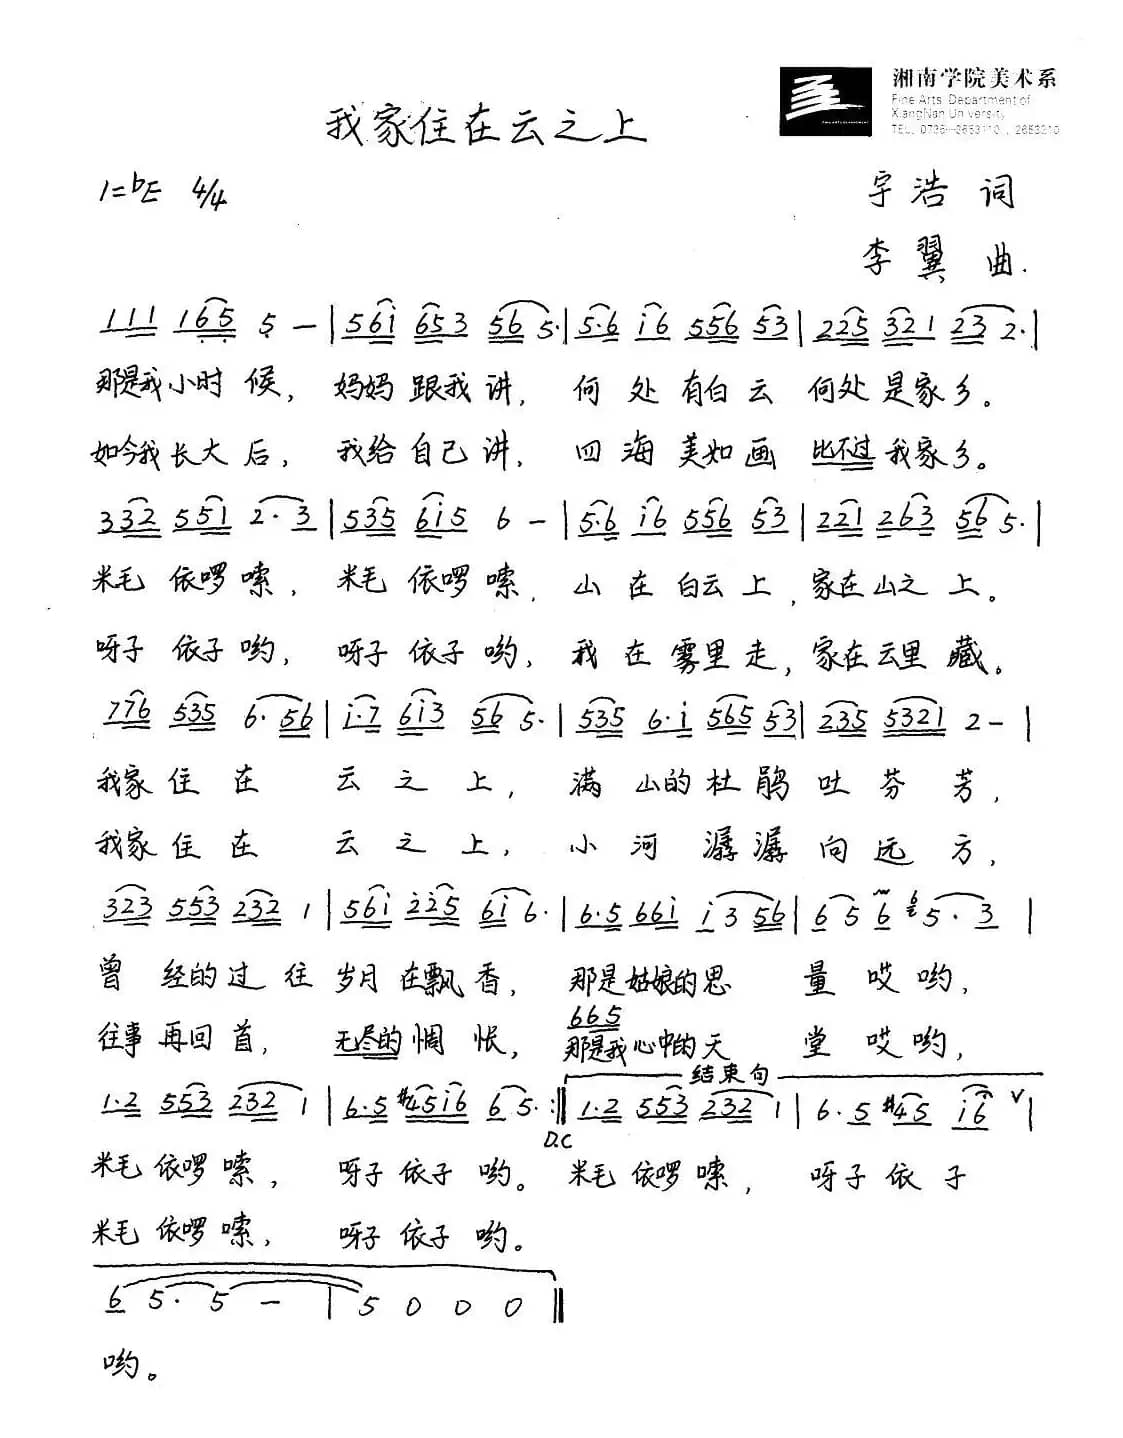 湘南学院美术系
Fine Arts Department of
XiangNan University
TEL, 0735-2653110, 2653210
我家住在云之上
1=bE 4/4
宇浩 词
李翼 曲.
111 165 5 — | 56i 653 56 5· | 5·6 i6 556 53 | 225 321 23 2· |
那是我小时候, 妈妈跟我讲, 何处有白云 何处是家乡。
如今我长大后, 我给自己讲, 四海美如画 比不过我家乡。
332 551 2·3 | 535 6i5 6 — | 5·6 i6 556 53 | 221 263 56 5· |
米毛依啰嗦, 米毛依啰嗦, 山在白云上, 家在山之上。
呀子依子哟, 呀子依子哟, 我在雾里走, 家在云里藏。
776 535 6·56 | i·7 6i3 56 5· | 535 6·i 565 53 | 235 5321 2 — |
我家住在 云之上, 满山的杜鹃吐芬芳,
我家住在 云之上, 小河潺潺向远方,
323 553 232 1 | 56i 225 6i 6· | 6·5 66i i3 56 | 6 5 6 5·3 |
曾经的过往 岁月在飘香, 那是姑娘的思量哎哟,
665
往事再回首, 无尽的惆怅, 那是我心中的天堂哎哟,
结束句
1·2 553 232 1 | 6·5 #45i6 6 5· :‖ 1·2 553 232 1 | 6·5 #45 i6 V |
D.C
米毛依啰嗦, 呀子依子哟。 米毛依啰嗦, 呀子依子
米毛依啰嗦, 呀子依子哟。
6 5· 5 — | 5 0 0 0 ‖
哟。